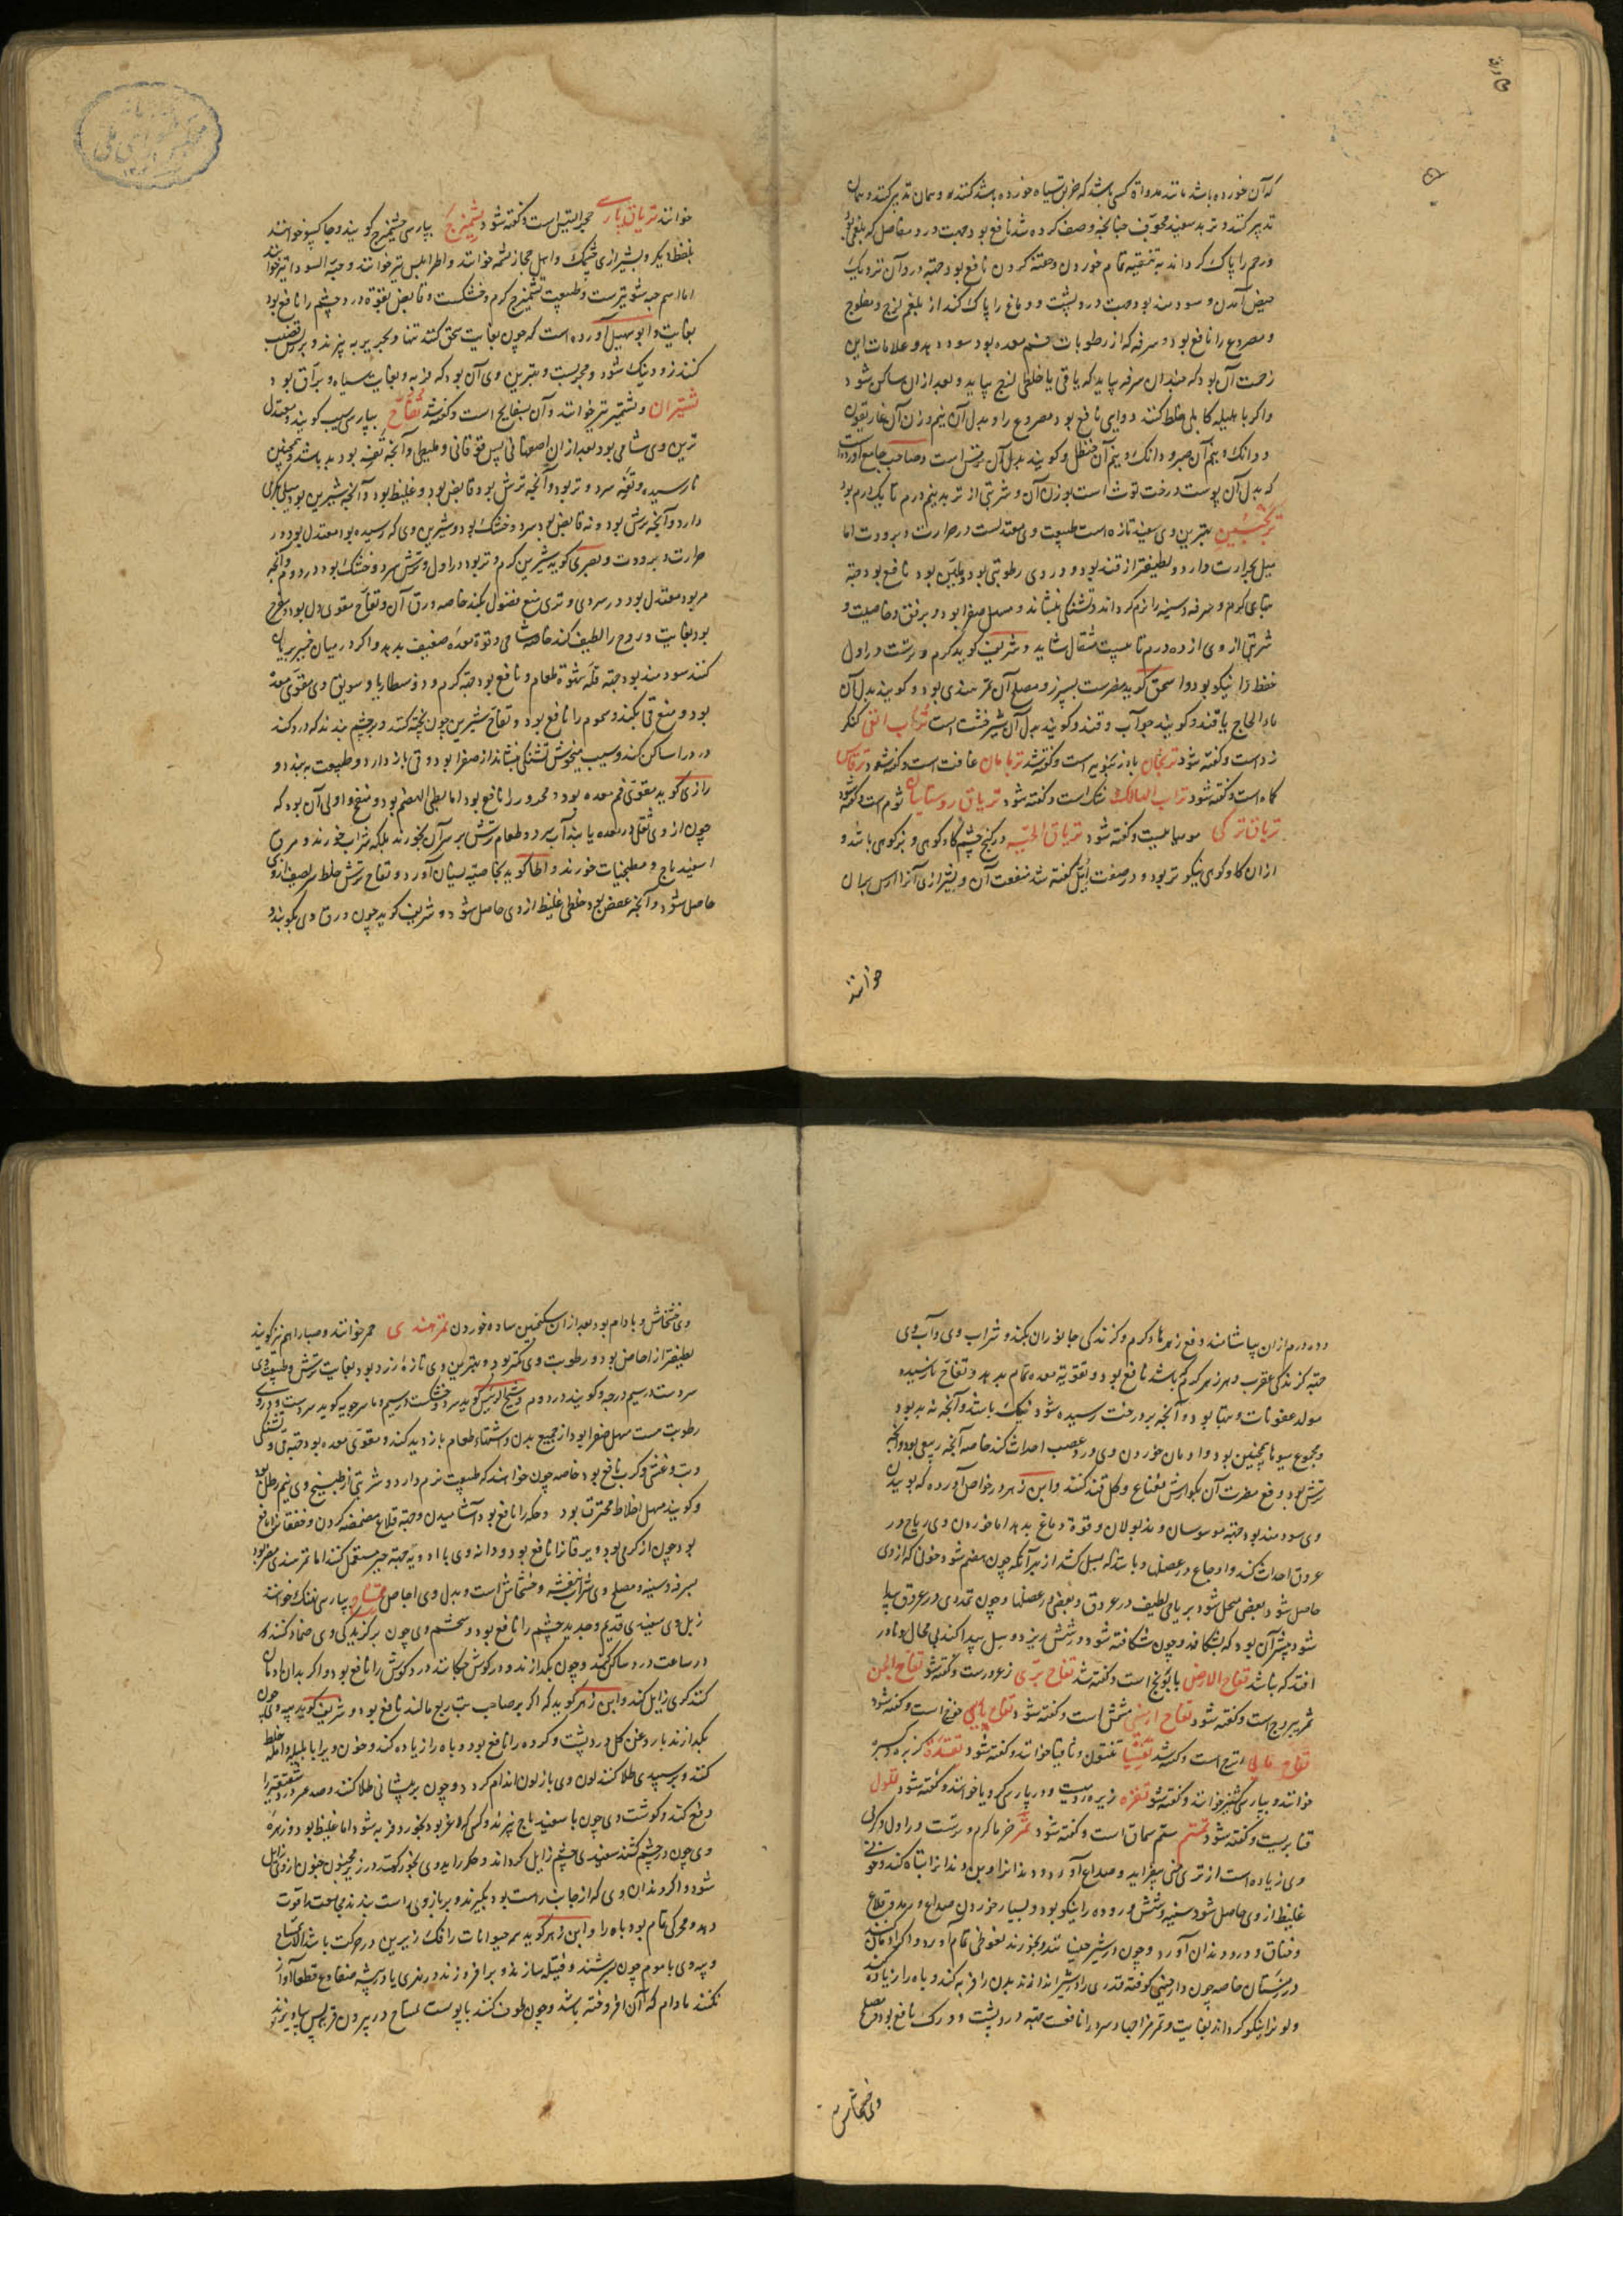 که آن خورده باشد مانند مداواة کسی باشد که خربق سیاه خورده باشد کنند و همان تدبیر کنند و همان
تدبیر کنند و تربد سفید مجوف چنانچه وصف کرده شد نافع بود جهت درد مفاصل که بلغمی بود
و رحم را پاک گرداند به تنقیه تمام خوردن و حقنه کردن نافع بود جهة درد آن نزدیک
حیض آمدن و سودمند بود جهت درد پشت و دماغ را پاک کند از بلغم لزج و مفلوج
و مصروع را نافع بود و سرفه که از رطوبات فم معده بود سود دهد و علامات این
زحمت آن بود که چندان سرفه بیاید که یا قی یا خلطی لزج بیاید و بعد از آن ساکن شود
و اگر با هلیله کابلی خلط کنند دوایی نافع بود مصروع را و بدل آن نیم وزن آن غاریقون
و دانک و نیم آن صبر و دانک و نیم آن حنظل و گویند بدل آن است و صاحب جامع آورده است
که بدل آن پوست درخت توت است بوزن آن و شربتی از تربد نیم درم تا یک درم بود
ترنجبین بهترین وی سفید تازه است طبیعت وی معتدلست در حرارت و برودت اما
میل بحرارت دارد و لطیفتر از قند بود و در وی رطوبتی بود و ملین بود نافع بود جهة
تبهای گرم و سرفه و سینه را نرم گرداند و تشنگی بنشاند و مسهل صفرا بود برفق و خاصیت و
شربتی از وی از ده درم تا بیست مثقال شاید و شریف گوید گرم و ترست در اول
حفظ را نیکو بود و اسحق گوید مضرست بسپرز و مصلح آن تمر هندی بود و گویند بدل آن
ماء الحاج با قند و گویند جوآب و قند و گویند بدل آن شیرخشت است تراب القی کنکر
زدست و گفته شود ترنجان بادرنجبویه است و گفته شد تربامان غافت است و گفته شود ترفاس
کماه است و گفته شود تراب الهالک شک است و گفته شود تریاق روستایان ثوم است و گفته شود
تریاق ترکی مومیاییست و گفته شود تریاق الحیه در کنج چشم گاو کوهی و بز کوهی باشد و
از آن گاو کوهی نیکوتر بود و در صفت ایل گفته شد منفعت آن و بشیرازی آنرا
خوانند
خوانند تریاق پارسی حجر التیس است و گفته شود تشمیزج بپارسی چشمیزج گویند و چاکسو خوانند
بلفظ دیگر و بشیرازی چشمک و اهل حجاز تشمه خوانند و اطرابلس نیز خوانند و حبة السودا نیز خوانند
اما اسم حبه شونیزست و طبیعت تشمیزج گرم و خشکست و قابض بقوة درد چشم را نافع بود
بغایت و ابو سهیل آورده است که چون بغایت سحق کنند تنها و بحریر به پزند و بر قضیب
کنند زود نیک شود و مجربست و بهترین وی آن بود که فربه و بغایت سیاه و براق بود
تشتیران و تشتمیر نیز خوانند و آن بسفایج است و گفته شد تفاح بپارسی سیب گویند و معتدل
ترین وی شامی بود بعد از آن اصفهانی پس قوقانی و طبیعی و آنچه تفه بود بد باشد و همچنین
نارسیده و تفه سرد و تر بود و آنچه ترش بود قابض بود و غلیظ بود و آنچه شیرین بود میل بگرمی
دارد و آنچه ترش بود و نه قابض بود سرد و خشک بود و شیرین وی که رسیده بود معتدل بود در
حرارت و برودت و بصری گوید شیرین گرم و تر بود در اول و ترش سرد و خشک بود در دوم و آنچه
مر بود معتدل بود در سردی و تری منع فضول بکند خاصه ورق آن و تفاح مقوی دل بود و مفرح
بود بغایت و روح را لطیف کند خاصه شامی و قوة معده ضعیف بدهد و اگر در میان خمیر بریان
کنند سودمند بود جهة قلة شهوة طعام و نافع بود جهة کرم و ذوسنطاریا و سویق وی مقوی معده
بود و منع قی بکند و سموم را نافع بود و تفاح شیرین چون پخته کنند و بر چشم بندند که درد کند
درد را ساکن کند و سیب میخوش تشنگی بنشاند از صفرا بود و قی باز دارد و طبیعت به بندد و
رازی گوید مقوی فم معده بود و محرور را نافع بود اما بطی الهضم بود و منفخ و اولی آن بود که
چون از وی ثقلی در معده یابند آب سرد و طعام ترش بر سر آن نخورند بلکه شراب خورند و مرق
اسفیدباج و مطجنات خورند و اطبا گویند بخاصیه نسیان آورد و تفاح ترش خلط
حاصل شود و آنچه عفص بود خلطی غلیظ از وی حاصل شود و شریف گوید چون ورق وی بکوبند و
دو درم از آن بیاشامند دفع زهرهاء گرم و گزندگی جانوران بکند و شراب وی و آب وی
جهة گزندگی عقرب و هر زهر که گرم باشد نافع بود و تقویة معده تمام بدهد و تفاح نارسیده
مولد عفونات و تبها بود و آنچه بر درخت رسیده شود نیک باشد و آنچه نه بد بود
و مجموع میوها همچنین بود و ادمان خوردن وی درد عصب احداث کند خاصه آنچه ربیعی بود و آنچه
ترش بود دفع مضرت آن بگوارش نعناع و گل قند کنند و ابن زهر در خواص آورده که بوییدن
وی سودمند بود جهة موسوسان و مذبولان و قوة دماغ بدهد اما خوردن وی ریاح در
عروق احداث کند و اوجاع در عضلها و باشد که بسل کشد از بهر آنکه چون هضم شود خونی که از وی
حاصل شود بعضی متحلل شود بریاحی لطیف در عروق و بعضی در عضلها و چون تمددی در عروق پیدا
شود بیشتر آن بود که بشکافد و چون شکافته شود در شش ریزد و سل پیدا کند بی محال و نادر
افتد که باشد تفاح الارض بابونج است و گفته شد تفاح بری زعرورست و گفته شود تفاح الجن
ثمر یبروج است و گفته شود تفاح ارمنی مشمش است و گفته شود تفاح خوخ است و گفته شود
تفاح مایی اترج است و گفته شد تفتیتا تفتون و نافیا خوانند و گفته شود تقدة کزبره
خوانند و بپارسی گشنیز خوانند و گفته شود تقره زیره رومیست و در پارسی کرویا خوانند و گفته شود
قنابریست و گفته شود تمتم سماق است و گفته شود تمر خرما گرم و ترست در اول و گرمی
وی زیاده است از تری منی بیفزاید و صداع آورد و دندانها و بن دندانها تباه کند و خونی
غلیظ از وی حاصل شود و سینه و شش و روده را نیکو بود و بسیار خوردن صداع و رمد و قلاع
و خناق و درد دندان آورد و چون در شیر خیسانند و بخورند نعوظی تمام آورد و اگر ادمان کنند
در زمستان خاصه چون دارچینی کوفته قدری را در شیر اندازند بدن را فربه کند و باه را زیاده کند
و لون را نیکو گرداند بغایت و تمر مزاجهاء سرد را نافعست جهة درد پشت و ورک نافع بود و مصلح
وی خشخاش
وی خشخاش و بادام بود بعد از آن سکنجبین ساده خوردن تمر هندی حمر خوانند و صبارا هم نیز گویند
لطیفتر از اجاص بود و رطوبت وی کمتر بود و بهترین وی تازه زرد بود بغایت ترش و طبیعت وی
سردست در سیم درجه و گویند در دوم و شیخ الرئیس گوید سرد و خشکست در سیم و ماسرجویه گوید سردست و در وی
رطوبت هست مسهل صفرا بود از جمیع بدن و اشتهاء طعام بازدید کند و مقوی معده بود جهة قی و تشنگی
و تب و غشی و کرب نافع بود خاصه چون خواهند که طبیعت نرم دارد و شربتی از طبیخ وی نیم رطل بود
و گویند مسهل اخلاط محترقه بود و حکه را نافع بود آشامیدن و جهة قلاع مضمضه کردن و خفقان را نافع
بود چون از گرمی بود و یرقان را نافع بود و دانه وی با ادویه جهة جبر مستعمل کنند اما تمر هندی مضر بود
بسرفه و سینه و مصلح وی شراب بنفشه و خشخاش است و بدل وی اجاص تمساح بپارسی نهنگ خوانند
زبل وی سفیدی قدیم و جدید چشم را نافع بود و شحم وی چون بر گزیدگی وی ضماد کنند
در ساعت درد ساکن کند و چون بگدازند و در گوش چکانند درد گوش را نافع بود و اگر بدان ادمان
کنند کری زایل کند و ابن زهر گوید که اگر بر صاحب تب ربع مالند نافع بود و شریف گوید پیه وی چون
بگدازند با روغن گل درد پشت و گرده را نافع بود و باه را زیاده کند و خون وی را با هلیله و آمله خلط
کنند و بر سپیدی طلا کنند لون وی با لون اندام گردد و چون بر پیشانی طلا کنند و صدغین درد شقیقه را
دفع کند و گوشت وی چون با سفیدباج پزند و کسی که لاغر بود بخورد فربه شود اما غلیظ بود و زهره
وی چون در چشم کشند سفیدی چشم زایل گرداند و جگر را بدوی بخور کنند در زیر مجنون جنون از وی زایل
شود و اگر دندان وی که از جانب راست بود بگیرند و بر بازوی راست بندند مجامعت را قوت
دهد و محرکی تمام بود باه را و ابن زهر گوید سر حیوانات را فک زیرین در حرکت باشد الا تمساح
و پیه وی با موم چون بسرشند و فتیله سازند و برافروزند در نهری یا در بیشه ضفادع قطعا آواز
نکنند مادام که آن افروخته باشد و چون طوف کنند با پوست تمساح در پیرامون قریه پس بیاویزند